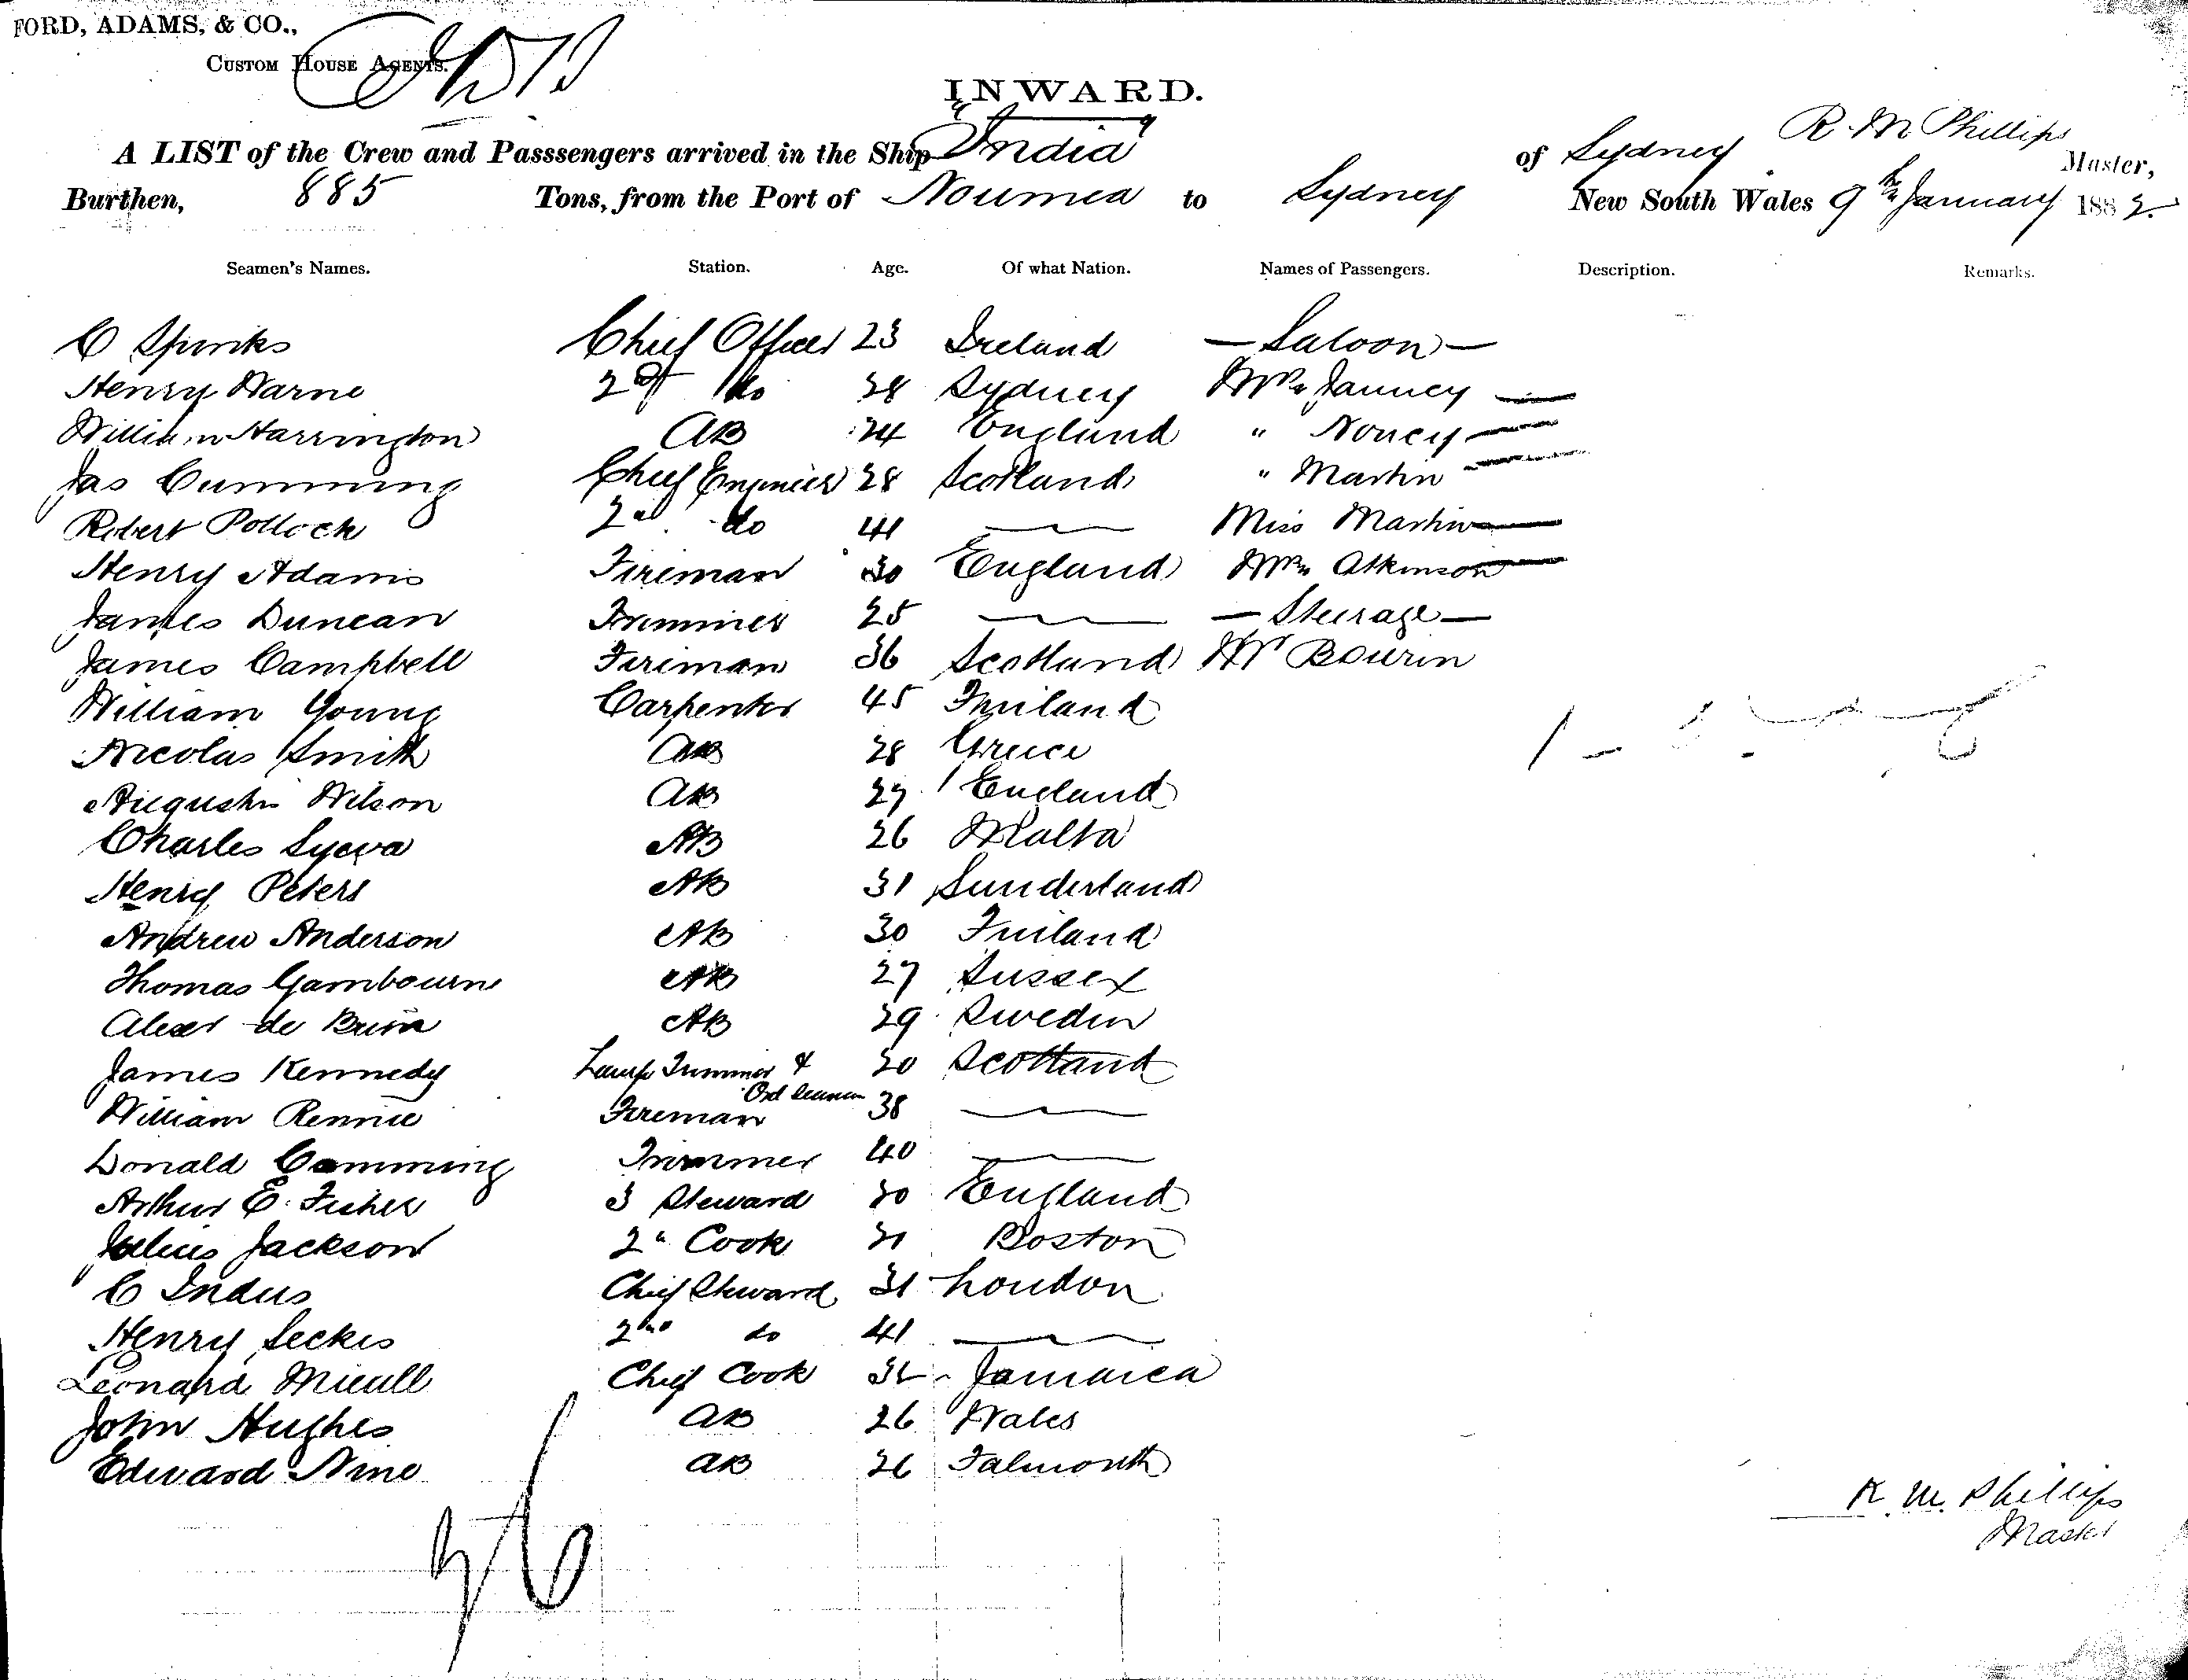 FORD, ADAMS, & CO.,
CUSTOM HOUSE AGENTS.
INWARD.
A LIST of the Crew and Passsengers arrived in the Ship "India" of Sydney R. M Phillips Master,
Burthen, 885 Tons, from the Port of Noumea to Sydney New South Wales 9th January 1882.
Seamen's Names. Station. Age. Of what Nation. Names of Passengers. Description. Remarks.
C Spinks Chief Officer 23 Ireland — Saloon —
Henry Warne 2nd do 28 Sydney Mrs Janney —
William Harrington AB 24 England " Noucy —
Jas Cumming Chief Engineer 28 Scotland " Martin —
Robert Pollock 2nd do 41 — Miss Martin —
Henry Adams Fireman 30 England Mrs Atkinson —
James Duncan Trimmer 25 — — Steerage —
James Campbell Fireman 36 Scotland Mr Bourin
William Young Carpenter 45 Finland
Nicolas Smith AB 28 Greece
Augustin Wilson AB 27 England
Charles Syeva AB 26 Malta
Henry Peters AB 31 Sunderland
Andrew Anderson AB 30 Finland
Thomas Gambourne AB 27 Sussex
Alexr de Bruin AB 29 Sweden
James Kennedy Lamp Trimmer & 20 Scotland
Ord Seaman
William Rennie Fireman 38 —
Donald Cumming Trimmer 40 —
Arthur E. Fisher 3 Steward 30 England
Julius Jackson 2nd Cook 31 Boston
C Indus Chief Steward 31 London
Henry Seckis 2nd do 41 —
Leonard Micull Chief Cook 32 Jamaica
John Hughes AB 26 Wales
Edward Nine AB 26 Falmouth
R. M. Phillips
Master
26